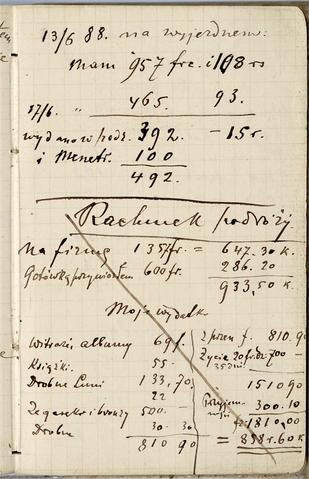 13/6 88. na wyjezdnem:
Mam 957 frc. i 108 rs
17/6. " 465. 93.
wydano w podr. 392. - 15 r.
i Menetr. 100
492.
Rachunek podróży.
Na firmę 1357 fr. = 647.30 K.
Gotówką przywiozłem 600 fr. 286.20
933,50 K.
Moje wydatk
Witraże, albumy 69 f.
Książki. 55-
Drobne Luni 133,70
22-
Zegarek i bronzy 500-
Drobne 30.30
810 90
Z poren f. 810.90
Życie 20 fr dz 700-
35 dni
1510 90
300.10
1810.00
= 858 r. 60 K